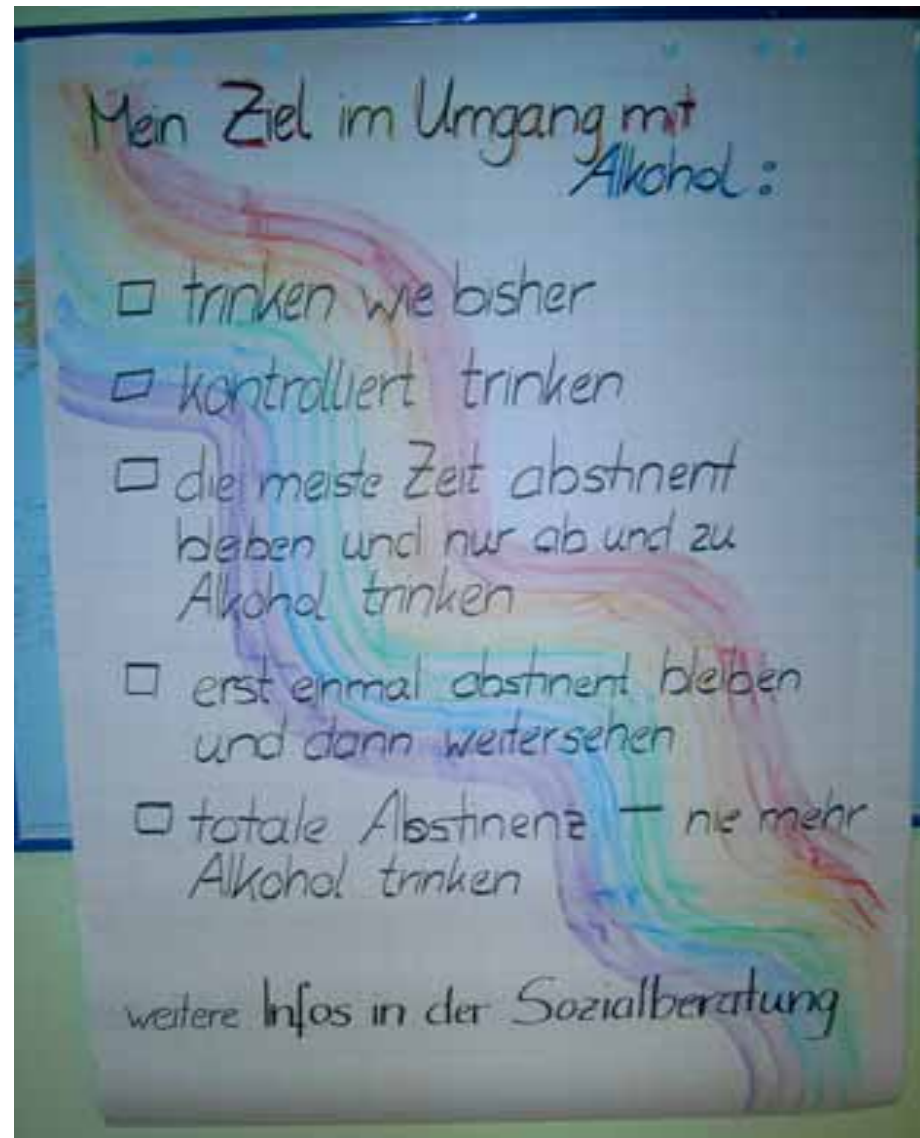 Mein Ziel im Umgang mit
Alkohol:
☐ trinken wie bisher
☐ kontrolliert trinken
☐ die meiste Zeit abstinent
bleiben und nur ab und zu
Alkohol trinken
☐ erst einmal abstinent bleiben
und dann weitersehen
☐ totale Abstinenz – nie mehr
Alkohol trinken
weitere Infos in der Sozialberatung